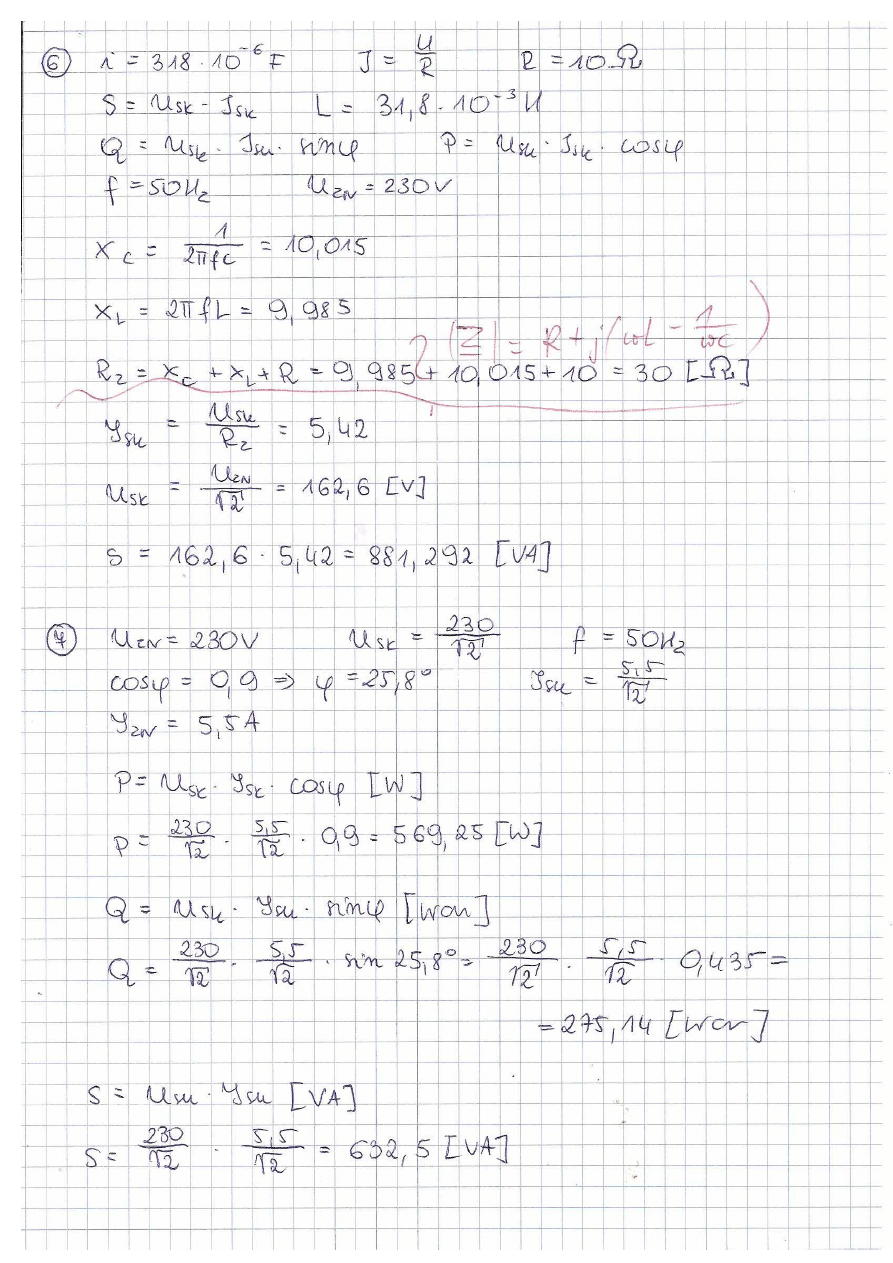 ⑥ i = 318 · 10⁻⁶ F J = U/R R = 10 Ω
S = Usk · Jsk L = 31,8 · 10⁻³ H
Q = Usk · Jsk · sinφ P = Usk · Jsk · cosφ
f = 50Hz UZN = 230V
Xc = 1/2πfC = 10,015
XL = 2πfL = 9,985
? |Z| = R + j(ωL - 1/ωC)
Rz = Xc + XL + R = 9,985 + 10,015 + 10 = 30 [Ω]
Jsk = Usk/Rz = 5,42
Usk = UZN/√2 = 162,6 [V]
S = 162,6 · 5,42 = 881,292 [VA]
⑦ UZN = 230V Usk = 230/√2 f = 50Hz
cosφ = 0,9 ⇒ φ = 25,8° Jsk = 5,5/√2
JZN = 5,5A
P = Usk · Jsk · cosφ [W]
P = 230/√2 · 5,5/√2 · 0,9 = 569,25 [W]
Q = Usk · Jsk · sinφ [War]
Q = 230/√2 · 5,5/√2 · sin 25,8° = 230/√2 · 5,5/√2 · 0,435 =
= 275,14 [War]
S = Usk · Jsk [VA]
S = 230/√2 · 5,5/√2 = 632,5 [VA]